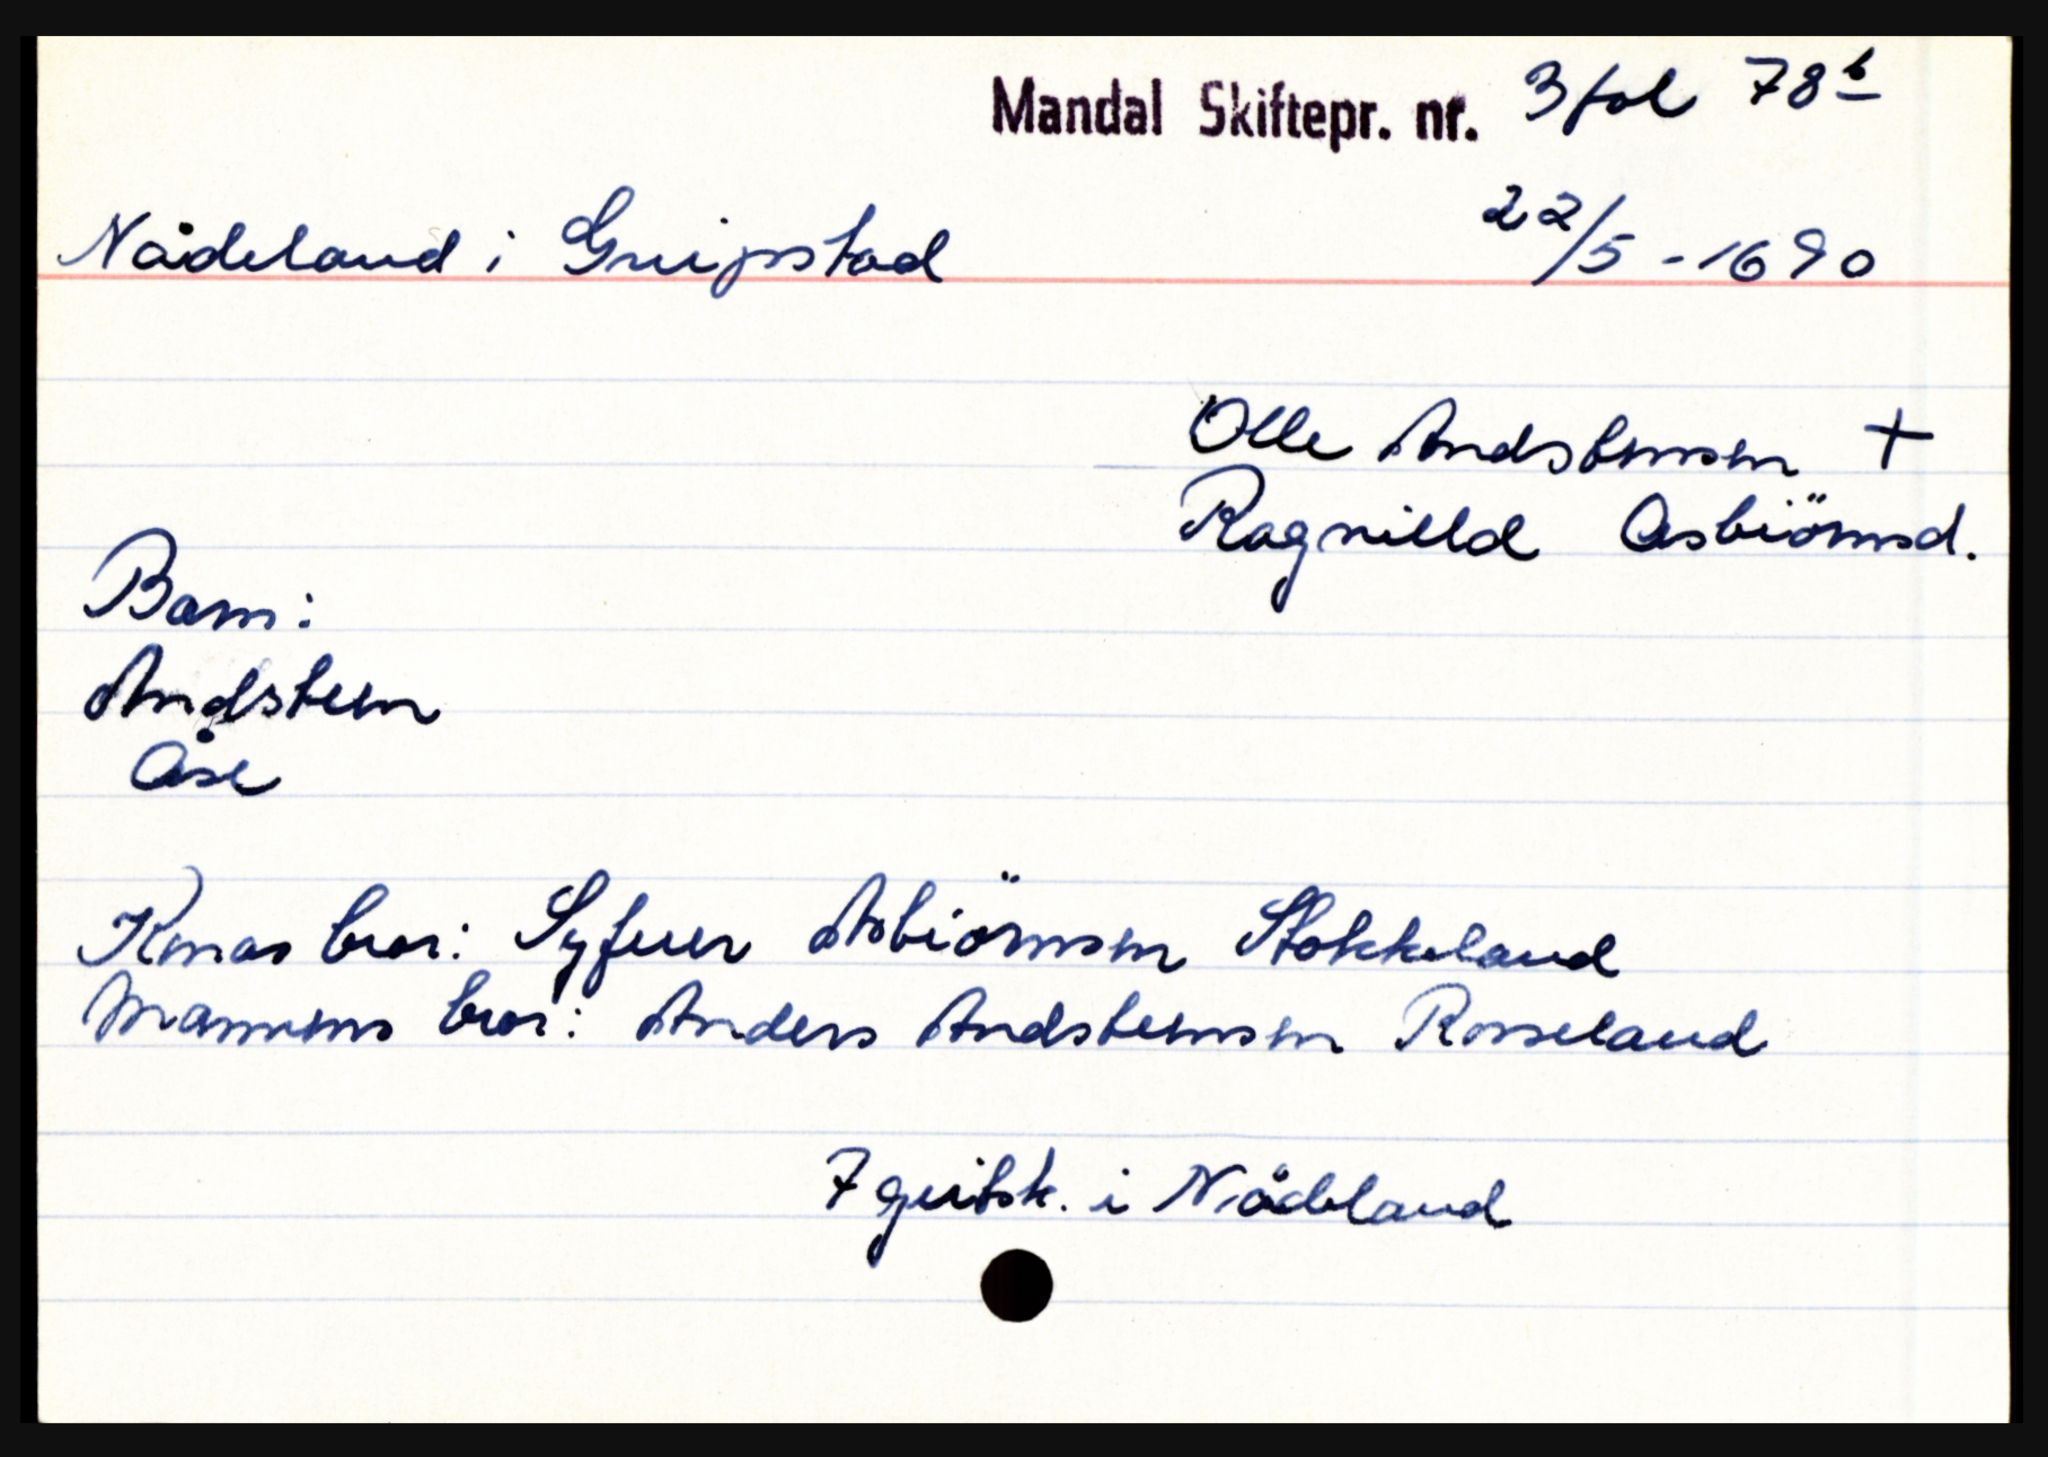 Mandal Skiftepr. nr. 3 fol 78b
Nådeland i Greipstad 22/5 - 1690
Olle Andstensen +
Ragnilld Asbiörnsd.
Barn:
Andsten
Åse
Konas bror: Syfuer Asbiörnsen Stokkeland
Mannens bror: Anders Andstensen Rosseland
7 geitsk. i Nådeland